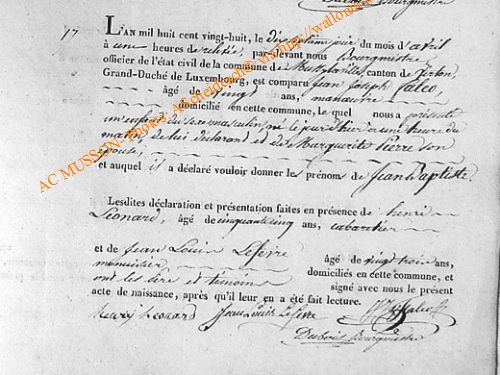 Bourgmestre
17
L'AN mil huit cent vingt-huit, le dix septième jour du mois d'avril
à une heures de relevée, par-devant nous Bourgmestre
officier de l'état civil de la commune de canton de
Grand-Duché de Luxembourg, est comparu Jean Joseph
âgé de vingt ans, manœuvre
domicilié en cette commune, le quel nous a présenté
un enfant du sexe masculin, né le jour d'hier à une heure du
matin, de lui déclarant et de Marguerite Pierre son
épouse,
et auquel il a déclaré vouloir donner les prénoms de Jean Baptiste.
Lesdites déclaration et présentation faites en présence de henri
Léonard, âgé de cinquante cinq ans, cabaretier
et de Jean Louis Lefèvre âgé de vingt trois ans,
menuisier domiciliés en cette commune, et
ont les père et témoins signé avec nous le présent
acte de naissance, après qu'il leur en a été fait lecture.
Henry Léonard Jean Louis Lefèvre
Bourgmestre
AC MUSSON-Photos Archeduc via http://wallonie